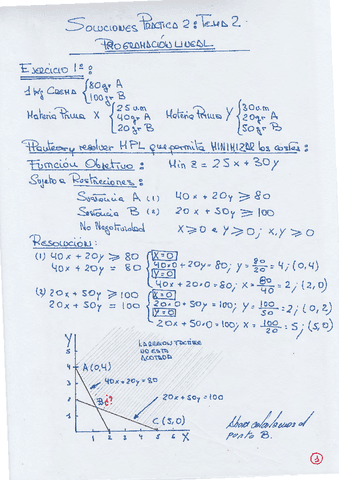 SOLUCIONES PRACTICA 2: TEMA 2
PROGRAMACIÓN LINEAL
EJERCICIO 1º:
1 Kg CREMA { 80gr A
100gr B
Materia Prima X { 25 u.m
40gr A
20gr B
Materia Prima Y { 30 u.m
20gr A
50gr B
Plantear y resolver MPL que permita MINIMIZAR los costes:
FUNCIÓN OBJETIVO: Min Z = 25x + 30y
SUJETO A RESTRICCIONES:
Sustancia A (1) 40x + 20y ≥ 80
Sustancia B (2) 20x + 50y ≥ 100
No Negatividad X ≥ 0 e Y ≥ 0; x, y ≥ 0
RESOLUCIÓN:
(1) 40x + 20y ≥ 80
40x + 20y = 80
X=0
40·0 + 20y = 80; y = 80/20 = 4; (0,4)
Y=0
40x + 20·0 = 80; x = 80/40 = 2; (2,0)
(2) 20x + 50y ≥ 100
20x + 50y = 100
X=0
20·0 + 50y = 100; y = 100/50 = 2; (0,2)
Y=0
20x + 50·0 = 100; x = 100/20 = 5; (5,0)
Y
5
4
3
2
1
A (0,4)
LA REGION FACTIBLE
NO ESTA
ACOTADA
40x + 20y = 80
B ¿?
20x + 50y = 100
C (5,0)
1 2 3 4 5 6 X
Ahora calculamos el
punto B.
1